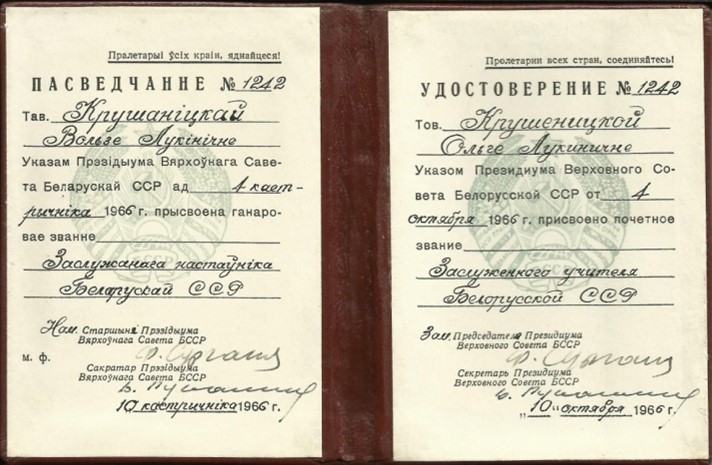 Пралетарыі ўсіх краін, яднайцеся!
ПАСВЕДЧАННЕ № 1242
Тав. Крушаніцкай
Вользе Лукінічне
Указам Прэзідыума Вярхоўнага Саве-
та Беларускай ССР ад 4 каст-
рычніка 1966 г. прысвоена ганаро-
вае званне
Заслужанага настаўніка
Беларускай ССР
Нам. Старшыні Прэзідыума
Вярхоўнага Савета БССР
м. ф.
Сакратар Прэзідыума
Вярхоўнага Савета БССР
10 кастрычніка 1966 г.
Пролетарии всех стран, соединяйтесь!
УДОСТОВЕРЕНИЕ № 1242
Тов. Крушеницкой
Ольге Лукиничне
Указом Президиума Верховного Со-
вета Белорусской ССР от 4
октября 1966 г. присвоено почетное
звание
Заслуженного учителя
Белорусской ССР
Зам. Председателя Президиума
Верховного Совета БССР
Секретарь Президиума
Верховного Совета БССР
„10" октября 1966 г.